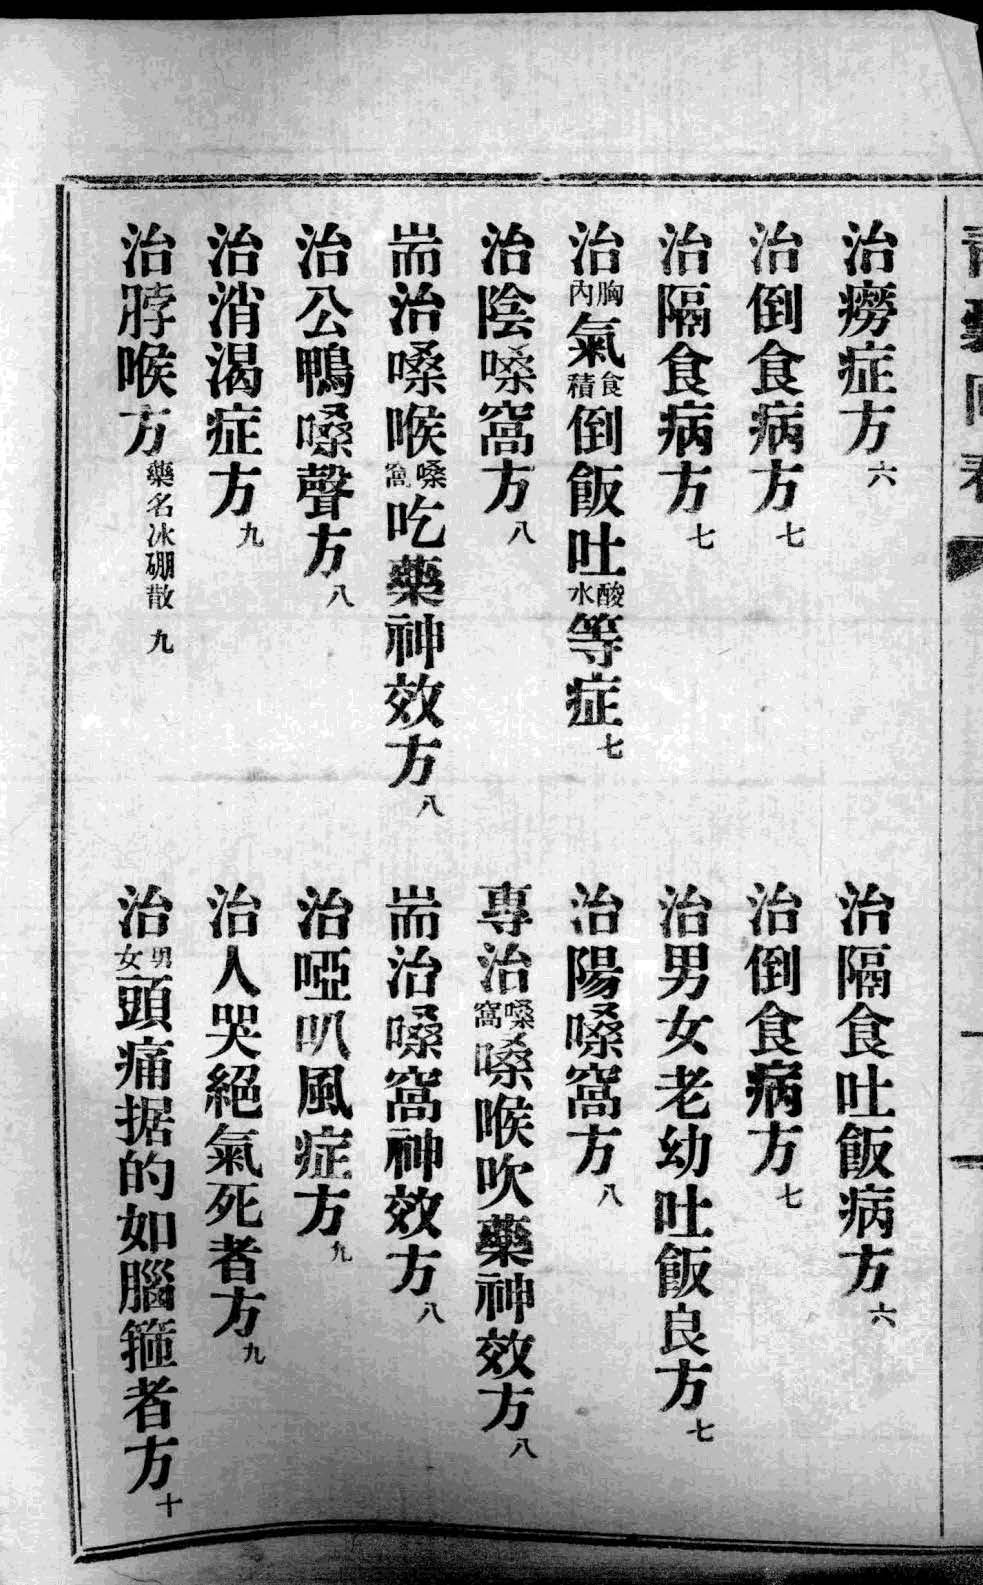 治癆症方 六
治隔食吐飯病方 六
治倒食病方 七
治倒食病方 七
治隔食病方 七
治男女老幼吐飯良方 七
治胸內氣食積倒飯吐酸水等症 七
治陽嗓窩方 八
治陰嗓窩方 八
專治嗓窩嗓喉吹藥神效方 八
耑治嗓喉嗓窩吃藥神效方 八
耑治嗓窩神效方 八
治公鴨嗓聲方 八
治啞叭風症方 九
治消渴症方 九
治人哭絕氣死者方 九
治脖喉方 藥名冰硼散 九
治男女頭痛据的如腦箍者方 十